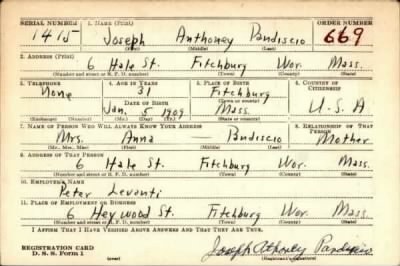 SERIAL NUMBER 1. NAME (Print) ORDER NUMBER
1415 Joseph Anthoney Pandiscio 669
(First) (Middle) (Last)
2. ADDRESS (Print)
6 Hale St. Fitchburg Wor. Mass.
(Number and street or R. F. D. number) (Town) (County) (State)
3. TELEPHONE 4. AGE IN YEARS 5. PLACE OF BIRTH 6. COUNTRY OF CITIZENSHIP
None 31 Fitchburg
DATE OF BIRTH (Town or county)
Jan. 5 1909 Mass. U.S.A
(Exchange) (Number) (Mo.) (Day) (Yr.) (State or country)
7. NAME OF PERSON WHO WILL ALWAYS KNOW YOUR ADDRESS 8. RELATIONSHIP OF THAT PERSON
Mrs. Anna Pandiscio Mother
(Mr., Mrs., Miss) (First) (Middle) (Last)
9. ADDRESS OF THAT PERSON
6 Hale St. Fitchburg Wor. Mass.
(Number and street or R. F. D. number) (Town) (County) (State)
10. EMPLOYER'S NAME
Peter Levanti
11. PLACE OF EMPLOYMENT OR BUSINESS
6 Heywood St. Fitchburg Wor. Mass.
(Number and street or R. F. D. number) (Town) (County) (State)
I AFFIRM THAT I HAVE VERIFIED ABOVE ANSWERS AND THAT THEY ARE TRUE.
REGISTRATION CARD
D. S. S. Form 1 Joseph Pandiscio
(Registrant's signature)